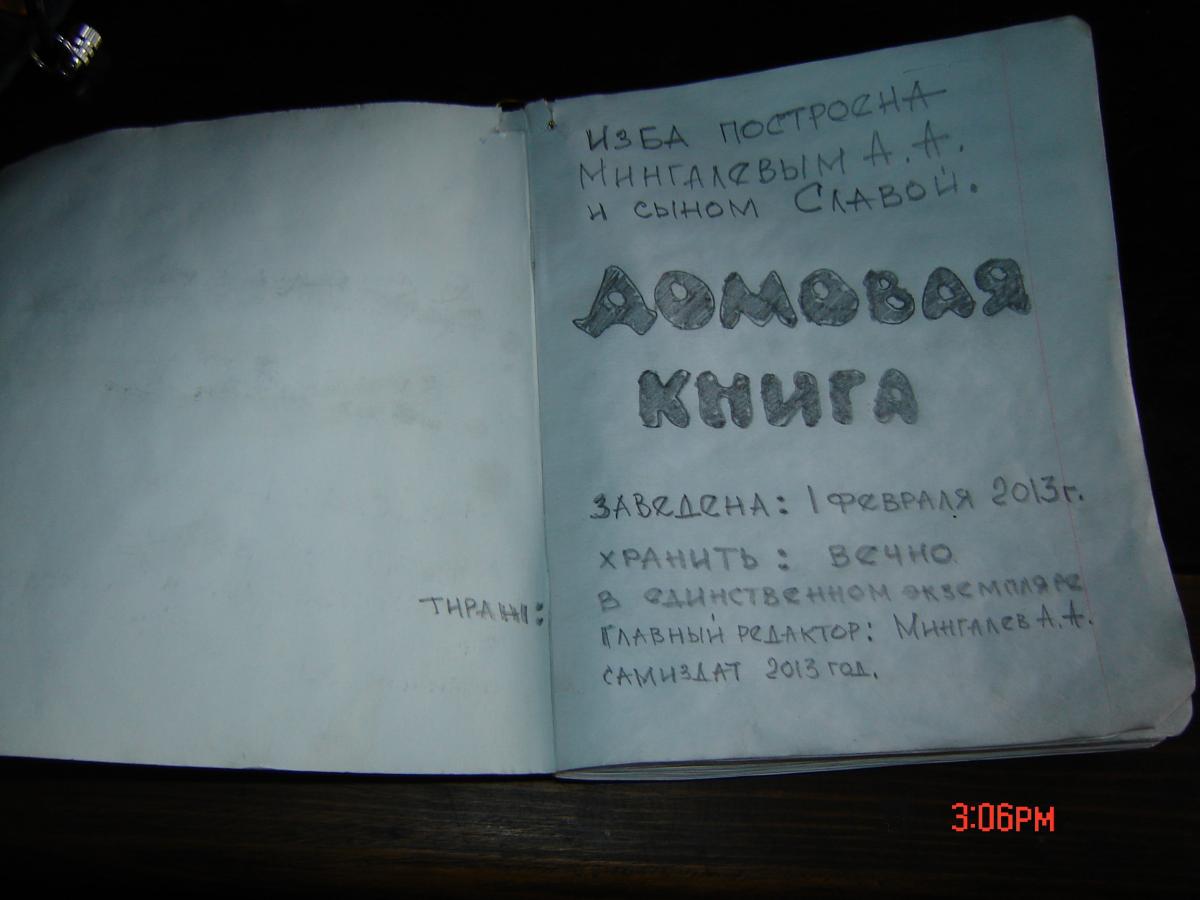 ИЗБА ПОСТРОЕНА
МИНГАЛЕВЫМ А.А.
и сыном Славой.
ДОМОВАЯ
КНИГА
ЗАВЕДЕНА: 1 ФЕВРАЛЯ 2013г.
ХРАНИТЬ: ВЕЧНО
ТИРАЖ: В ЕДИНСТВЕННОМ ЭКЗЕМПЛЯРЕ
ГЛАВНЫЙ РЕДАКТОР: МИНГАЛЕВ А.А.
САМИЗДАТ 2013 год.
3:06PM